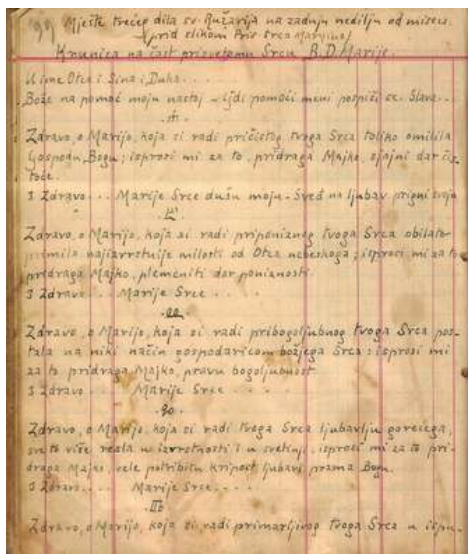 99 Mjesto trećeg dila sv. Ružarija na zadnju nedilju od miseca
prid slikom Pris. Srca Marijina
Krunica na čast prisvetomu Srcu B. D. Marije.
U ime Otca i Sina i Duha...
Bože na pomoć moju nastoj – i jdi pomoći meni pospiši se. Slava...
Zdravo, o Marijo, koja si radi pričistog tvoga Srca toliko omilila
Gospodu Bogu; isprosi mi za to, pridraga Majko, sjajni dar čis-
toće.
3 Zdravo... Marije Srce dušu moju - Sveđ na ljubav prigni svoju
Zdravo, o Marijo, koja si radi priponiznog tvoga Srca obilato
primila najizvrstnije milosti od Otca nebeskoga; isprosi mi za to
pridraga Majko, plemeniti dar poniznosti.
3 Zdravo... Marije Srce....
Zdravo, o Marijo, koja si radi pribogoljubnog tvoga Srca pos-
tala na niki način gospodaricom božjega Srca; isprosi mi
za to pridraga Majko, pravu bogoljubnost
3 Zdravo.... Marije Srce....
Zdravo, o Marijo, koja si radi tvoga Srca ljubavlju gorećega,
sve to više resla u izvrstnosti i u svetinji, isprosi mi za to pri-
draga Majko, vele potribitu kripost ljubavi prama Bogu.
3 Zdravo.... Marije Srce....
Zdravo, o Marijo, koja si radi primarljivog tvoga Srca u ispu-